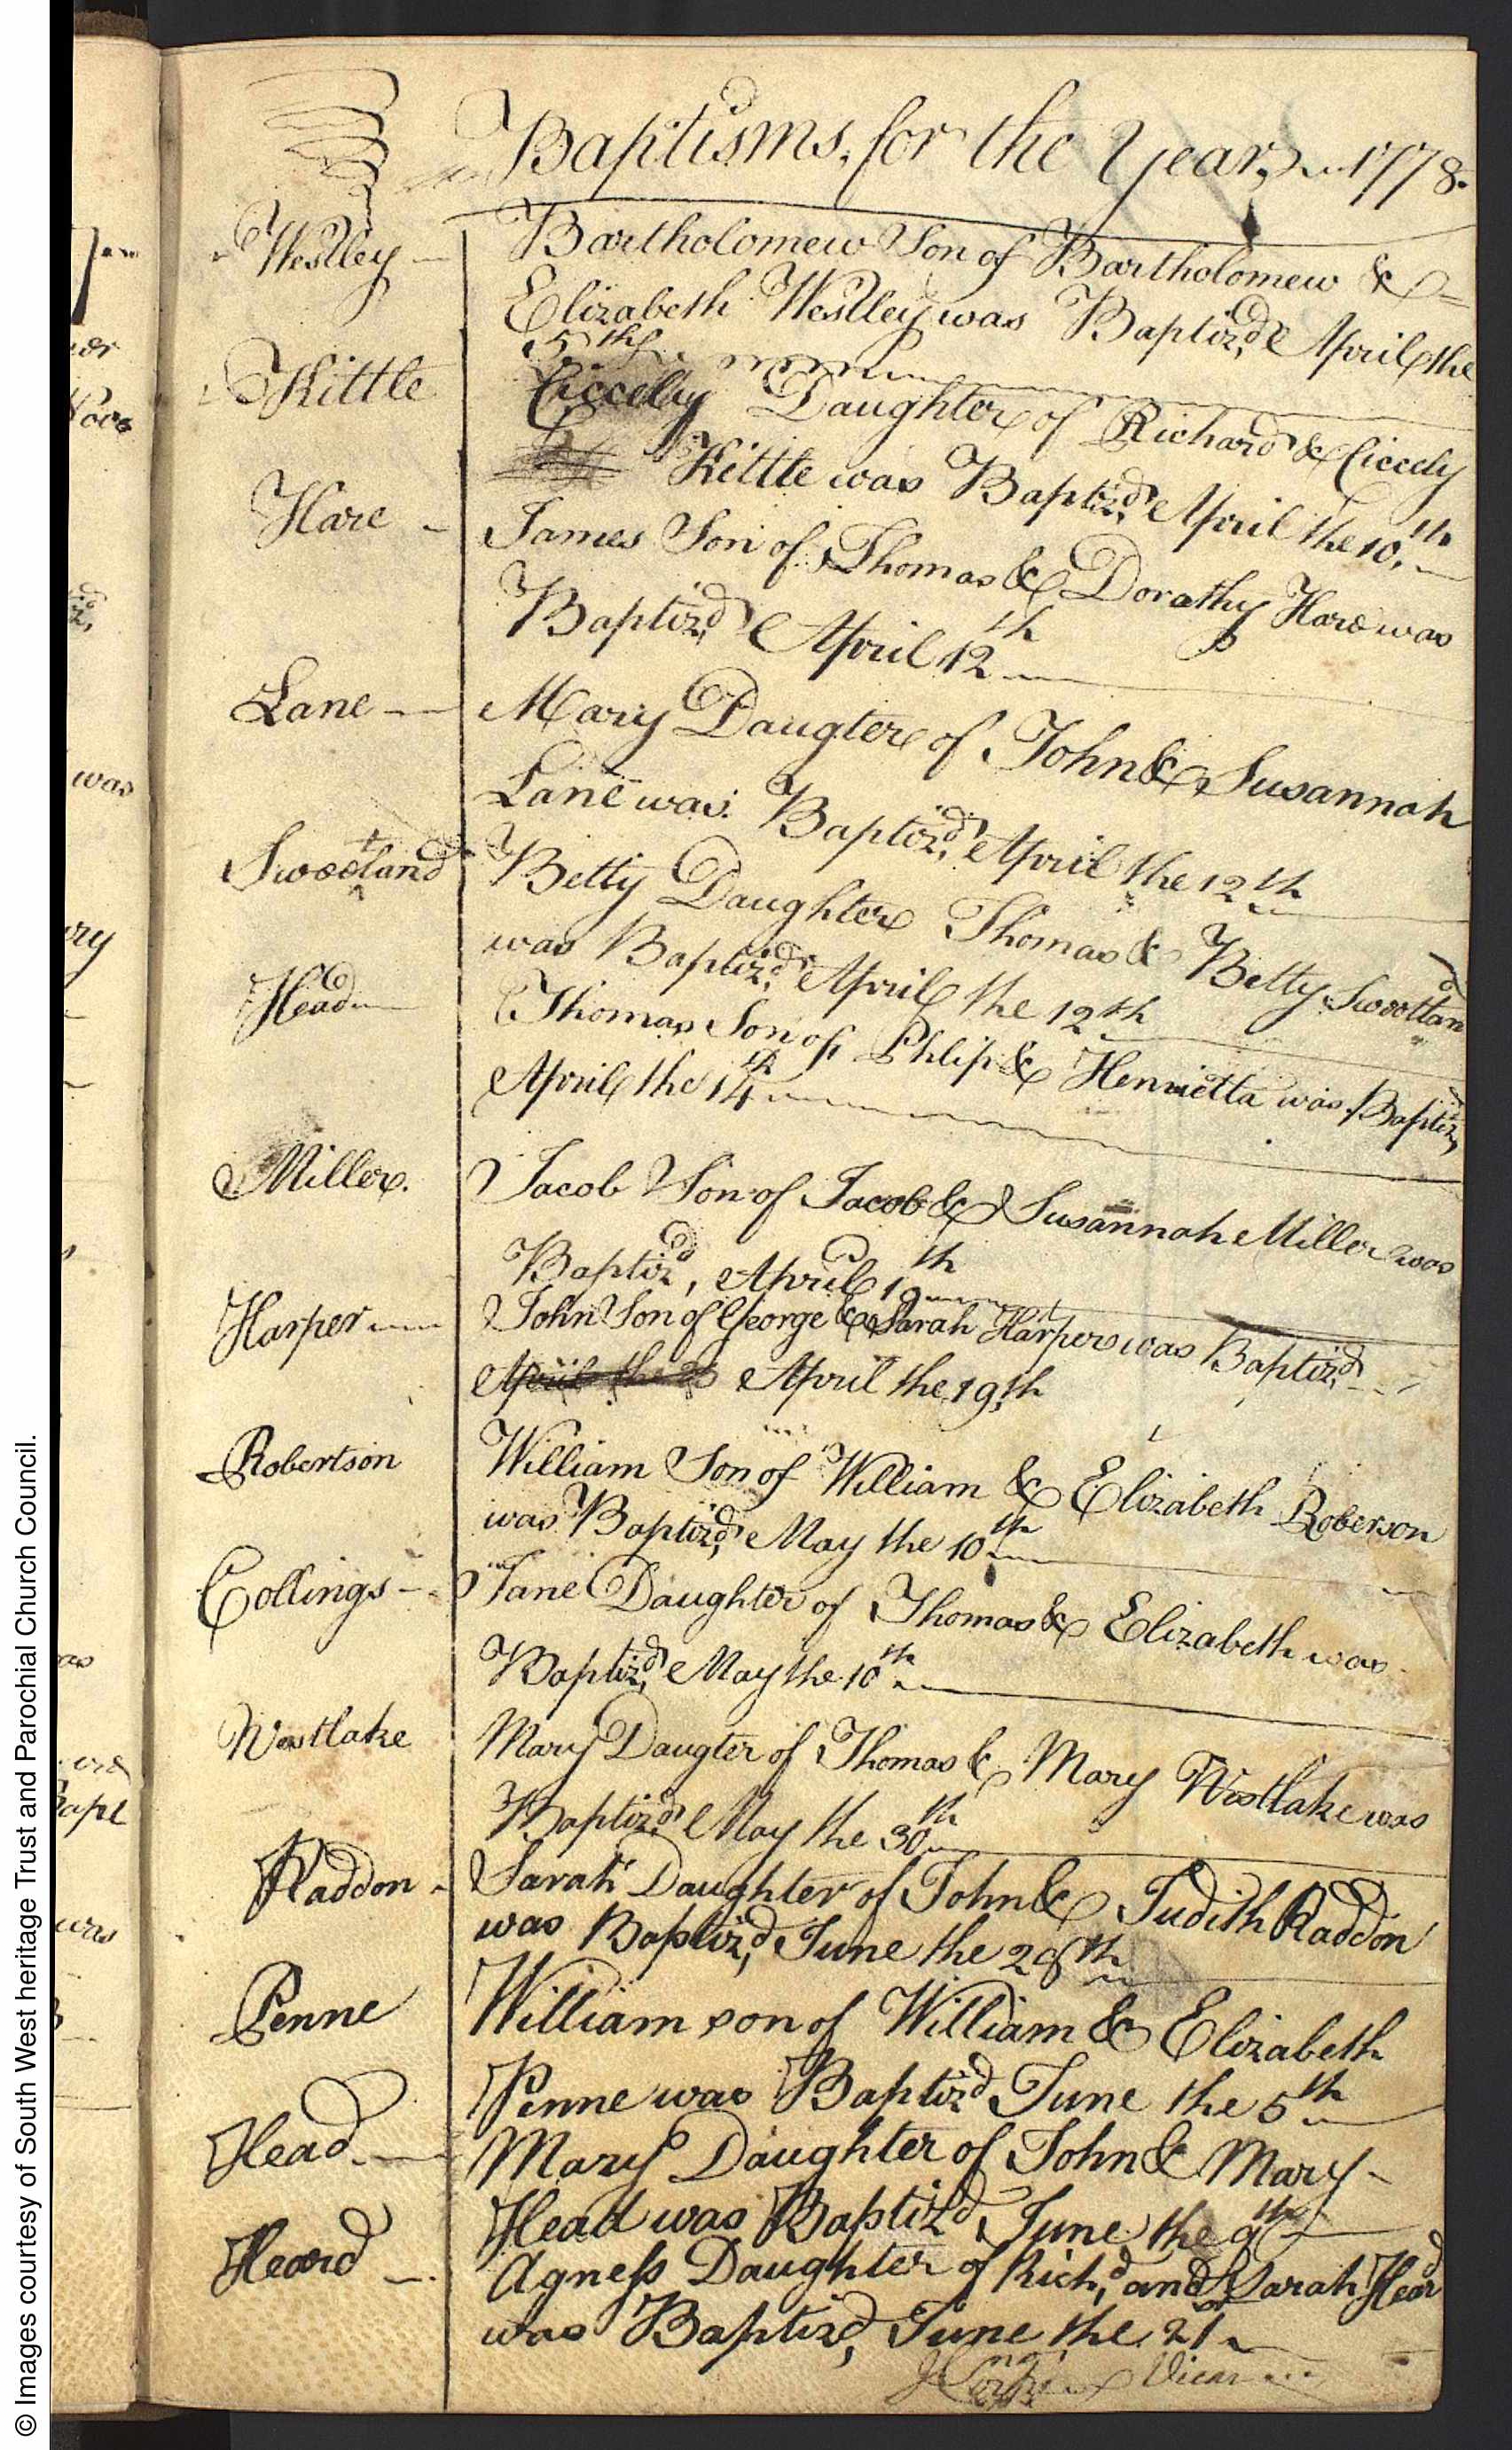 Baptisms, for the Year, 1778.
Westley
Bartholomew Son of Bartholomew &
Elizabeth Westley was Baptiz,d April the
5th
Kittle
Ciccely Daughter of Richard & Ciccely
Kittle was Baptiz,d April the 10,th
Hare
James Son of Thomas & Dorathy Hare was
Baptiz,d April 12th
Lane
Mary Daugter of John & Susannah
Lane was Baptiz,d April the 12th
Sweetland
Betty Daughter Thomas & Betty Sweetland
was Baptiz,d April the 12th
Head
Thomas Son of Phlip & Henrietta was Baptiz,d
April the 14th
Miller.
Jacob Son of Jacob & Susannah Miller was
Baptiz,d April 19th
Harper
John Son of George & Sarah Harper was Baptiz,d
April the April the 19,th
Robertson
William Son of William & Elizabeth Roberson
was Baptiz,d May the 10th
Collings
Jane Daughter of Thomas & Elizabeth was
Baptiz,d May the 10th
Westlake
Mary Daugter of Thomas & Mary Westlake was
Baptiz,d May the 30th
Raddon
Sarah Daughter of John & Judith Raddon
was Baptiz,d June the 28th
Penne
William son of William & Elizabeth
Penne was Baptizd June the 5th
Head
Mary Daughter of John & Mary
Head was Baptizd June the 9th
Heard
Agness Daughter of Rich,d and Sarah Heard
was Baptizd, June the 21
Vicar
© Images courtesy of South West heritage Trust and Parochial Church Council.